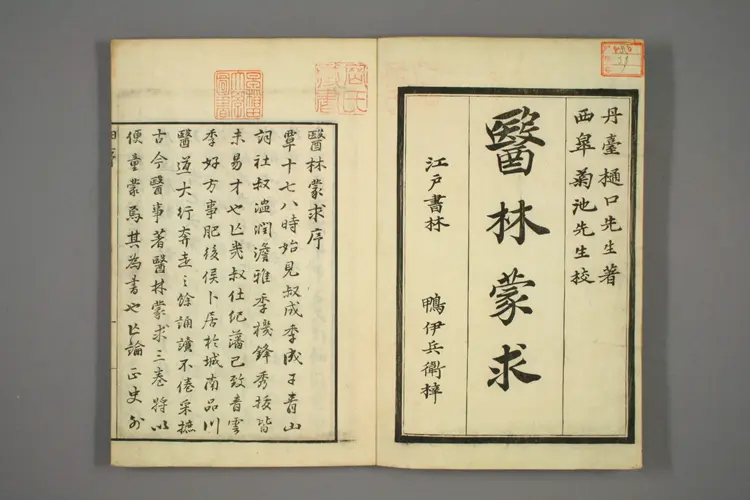 丹臺樋口先生著
西皐菊池先生校
醫林蒙求
江戶書林　鴨伊兵衞梓
醫林蒙求序
覃十七八時始見叔成季成于青山
詞社叔溫潤澹雅季機鋒秀拔皆
未易才也亡幾叔仕紀藩已致青雲
季好方事肥後侯卜居於城南品川
醫道大行奔走之餘誦讀不倦采摭
古今醫事著醫林蒙求三卷將以
便童蒙焉其為書也亡論正史外